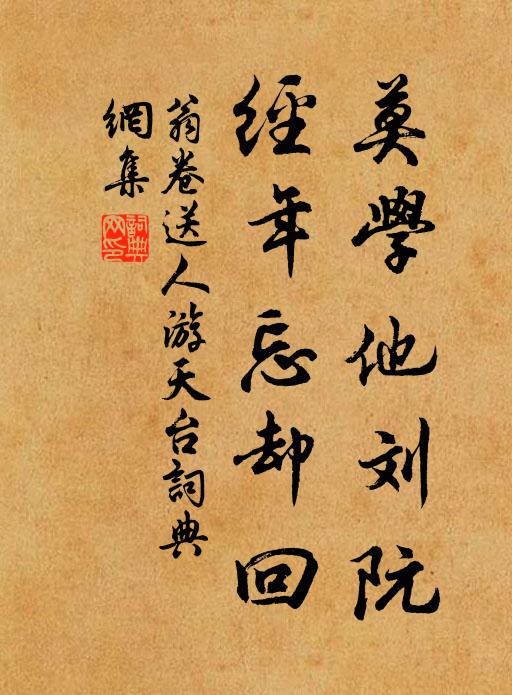 莫學他刘阮
經年忘却回
翁卷送人游天台詞典
網集
詞典
网印